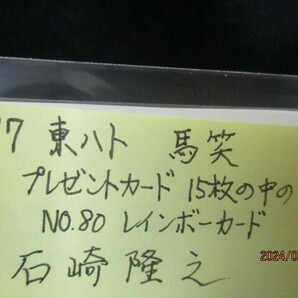 17 東ハト 馬笑
プレゼントカード 15枚の中の
NO.80 レインボーカード
石崎隆之
2024/0